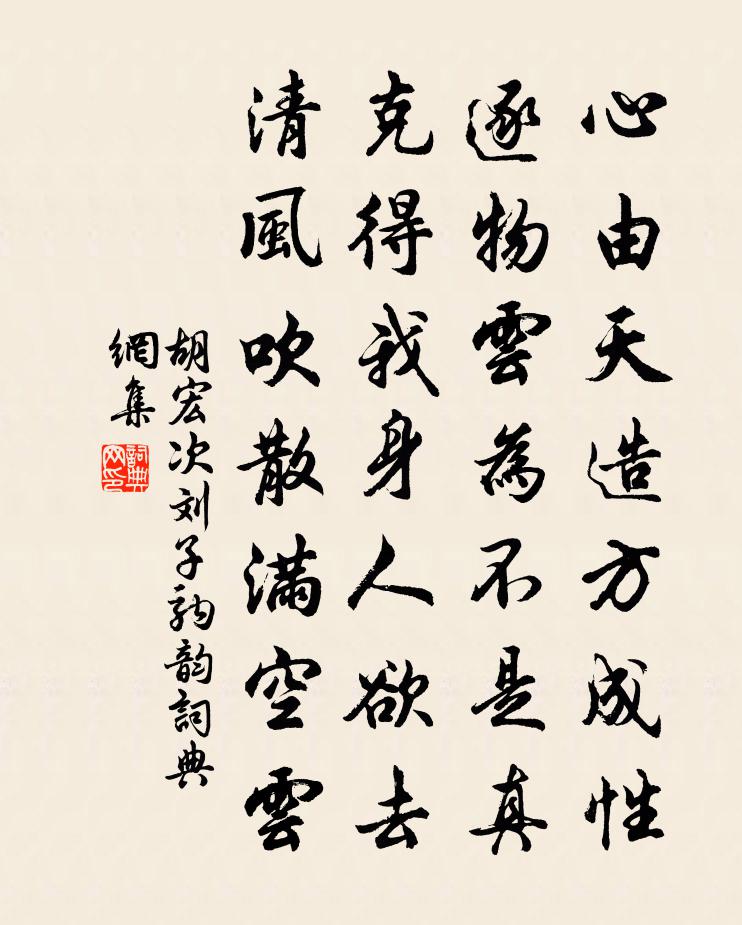 心由天造方成性
逐物雲為不是真
克得我身人欲去
清風吹散滿空雲
胡宏次刘子駒韵詞典
網集
詞典
网印